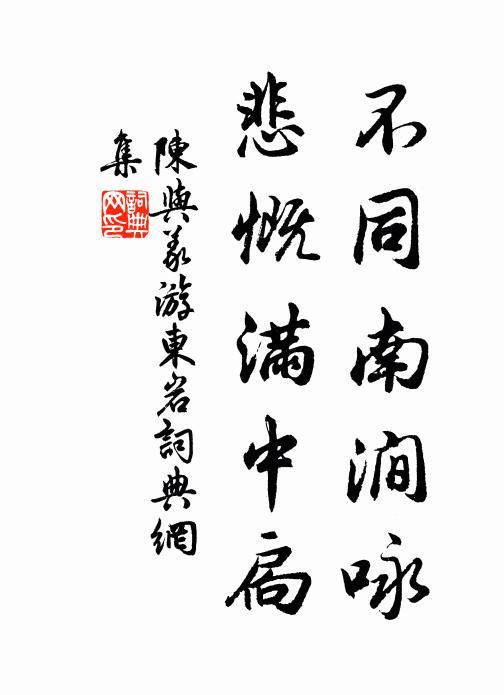 不同南澗咏
悲慨满中扃
陳與義游東岩詞典網
集
詞典網印